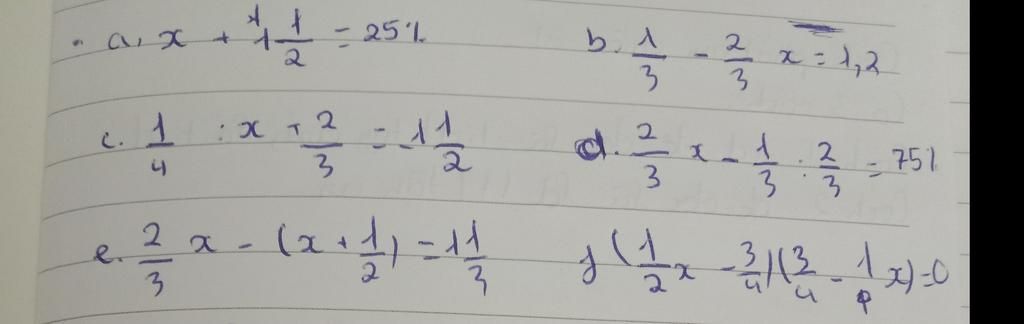 a, x + 1 1/2 = 25%
b. 1/3 - 2/3 x = 1,2
c. 1/4 : x + 2/3 = -1 1/2
d. 2/3 x - 1/3 : 2/3 = 75%
e. 2/3 x - (x + 1/2) = 1 1/3
f (1/2 x - 3/4)(3/4 - 1/ x) = 0